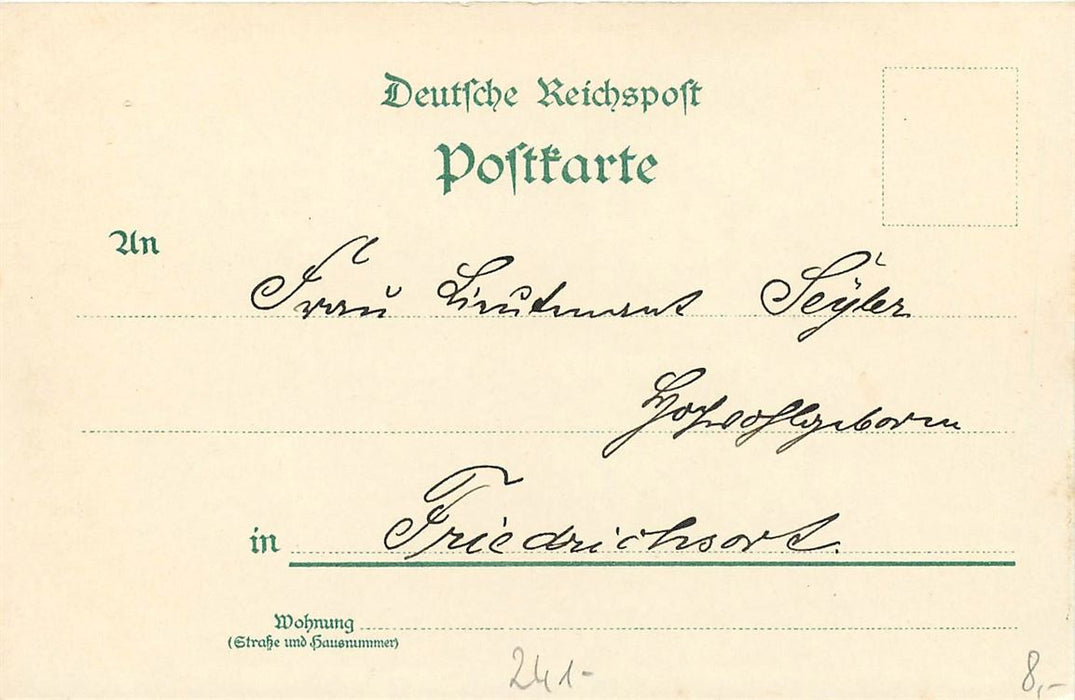 Deutsche Reichspost
Postkarte
An
Frau Lieutenant Seÿler
Hochwohlgeboren
in Friedrichsort.
Wohnung
(Straße und Hausnummer)
241-
8,-